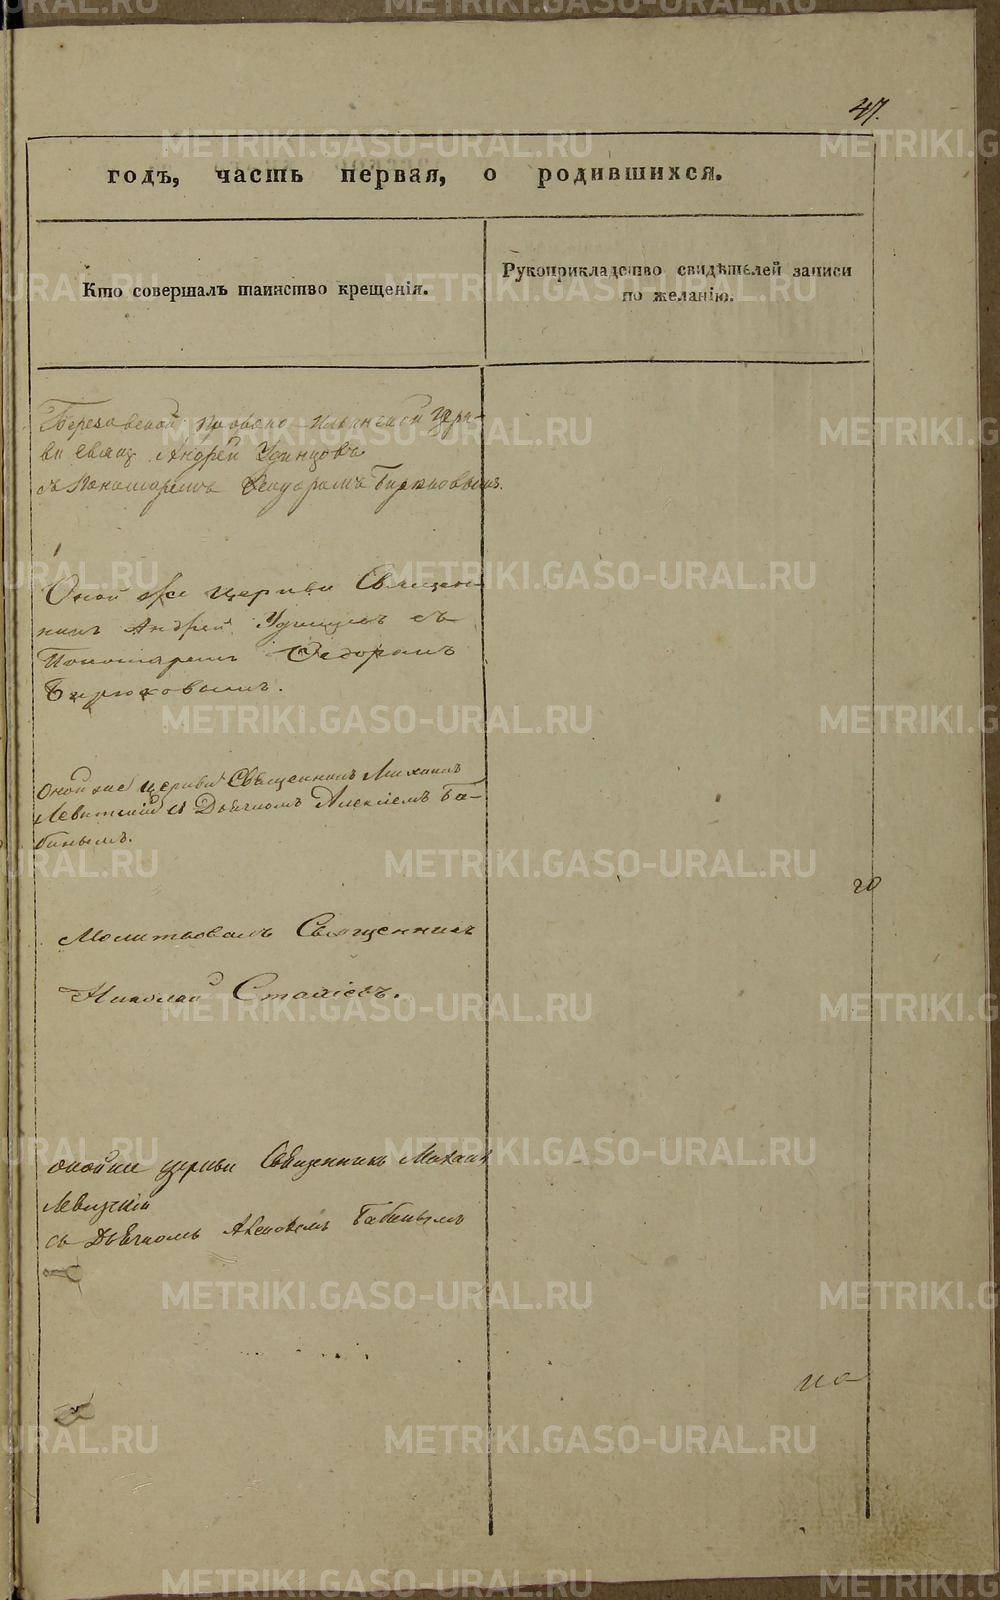 47.
годъ, часть первая, о родившихся.
Кто совершалъ таинство крещенія.
Рукоприкладство свидѣтелей записи
по желанію.
Андрей Удинцовъ
съ Пономаремъ Феодоромъ Бирюковымъ.
Оной же церкви Священ-
никъ Андрей Удинцовъ съ
Пономаремъ Федоромъ
Бирюковымъ.
Оной же церкви Священникъ Михаилъ
Левитскій съ Дьячкомъ Алексіемъ Ба-
бинымъ.
Молитвовалъ Священникъ
Николай
оной же церкви Священникъ Михаил
съ Дьячкомъ Бабинымъ
METRIKI.GASO-URAL.RU